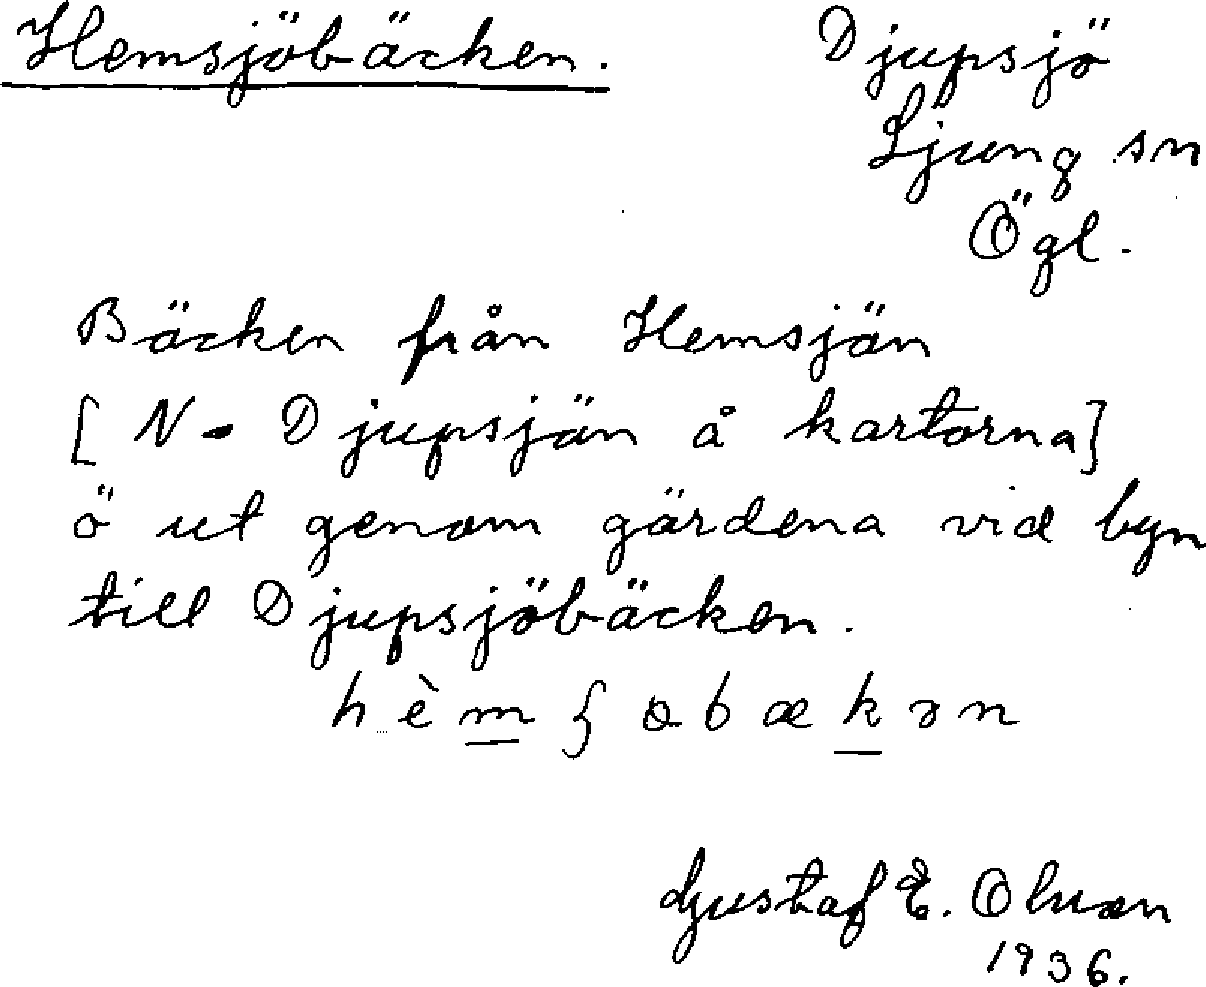 Hemsjöbäcken.
Djupsjö
Ljung sn
Ögl.
Bäcken från Hemsjön
[N. Djupsjön å kartorna]
ö ut genom gärdena vid byn
till Djupsjöbäcken.
Gustaf E. Olsson
1936.